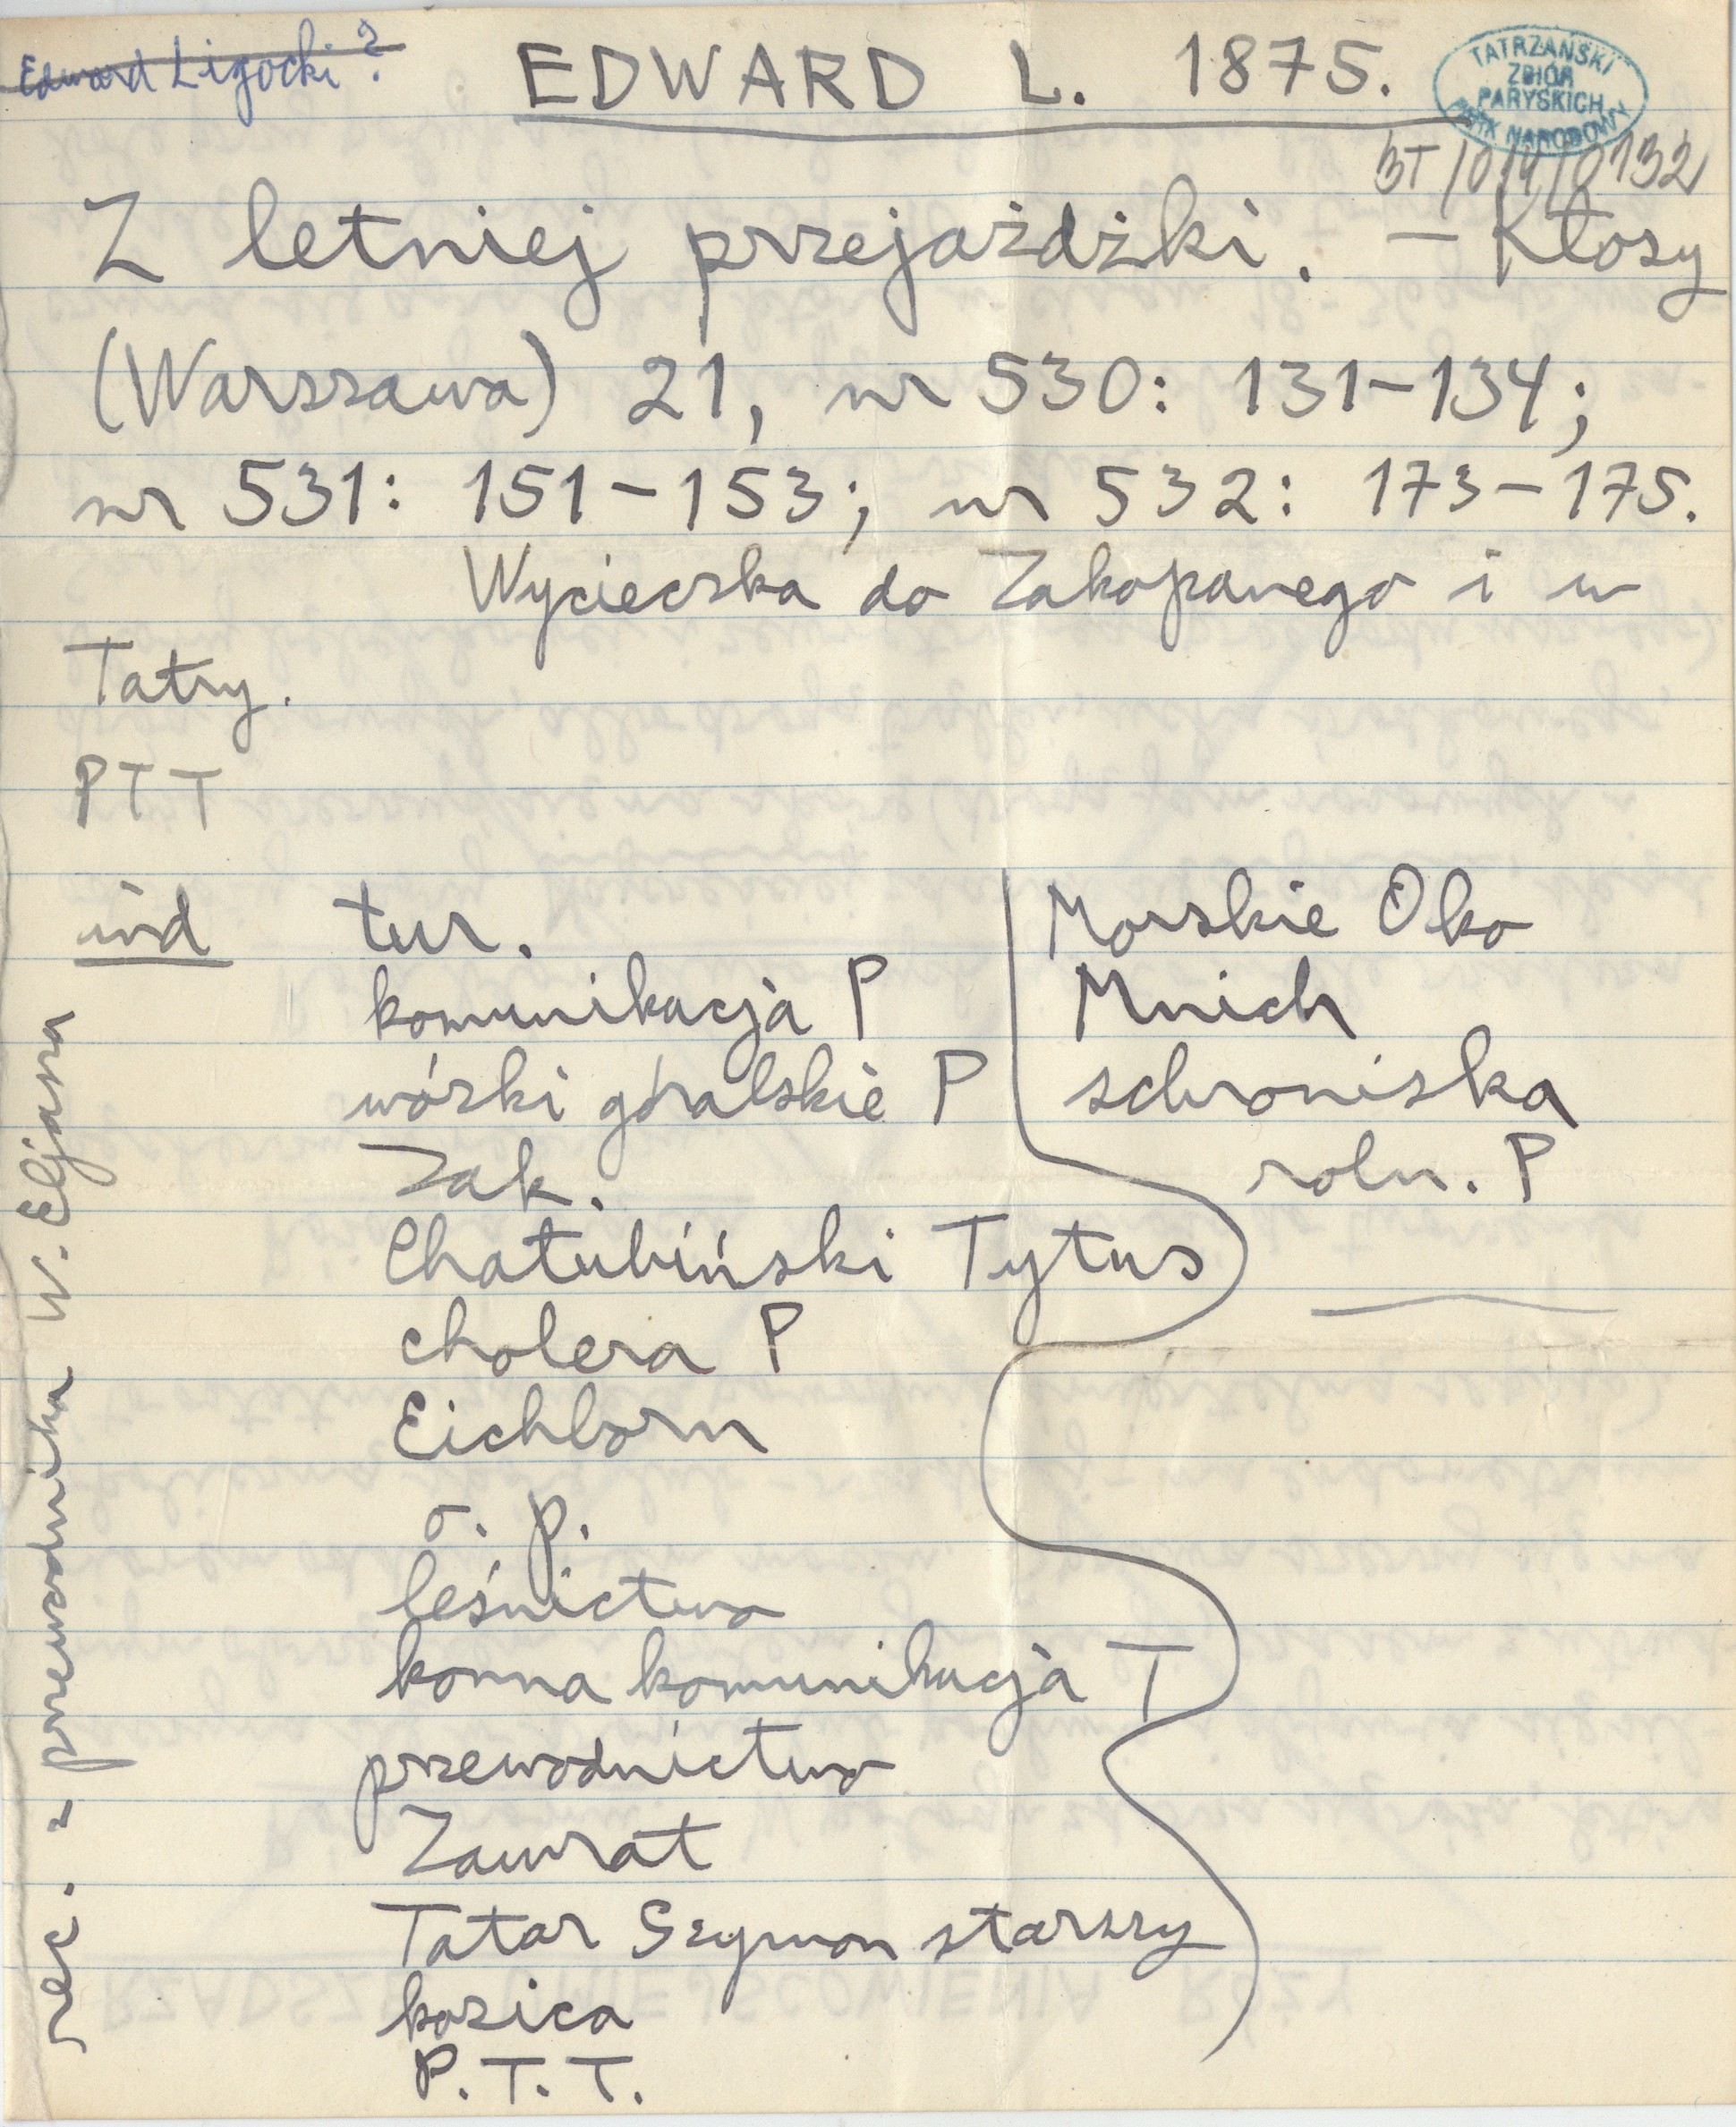 Edward Ligocki?
EDWARD L. 1875.
TATRZAŃSKI
ZBIÓR
PARYSKICH
PARK NARODOWY
BT/014/0132
Z letniej przejażdżki. – Kłosy
(Warszawa) 21, nr 530: 131–134;
nr 531: 151–153; nr 532: 173–175.
Wycieczka do Zakopanego i w
Tatry.
PTT
ind
tur.
komunikacja P
wózki góralskie P
Zak.
Chałubiński Tytus
cholera P
Eichborn
o. p.
leśnictwo
konna komunikacja T
przewodnictwo
Zawrat
Tatar Szymon starszy
kozica
P.T.T.
Morskie Oko
Mnich
schroniska
roln. P
rec. z przewodnika W. Eljasza